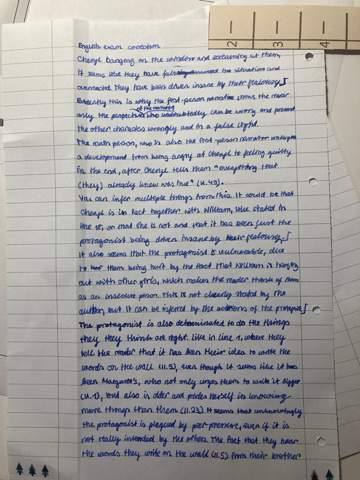 English exam correction
Cheryl banging on the window and screaming at them,
It seems like they have the situation and
overreacted. They have been driven insane by their jealousy.
Especially this is why the first-person narrative gives the reader
only the of the narrator who can be wrong and present
the other characters wrongly and in a false light.
The main person, who is also the first-person narrator undergoes
a development from being angry at Cheryl to feeling guilty
in the end, after Cheryl tells them "everything that
(they) already knew was true" (ll. 43).
You can infer multiple things from this. It could be that
Cheryl is in fact together with William, like stated in
line 15, or that she is not and that it has been just the
protagonist being driven insane by their jealousy.
It also seems that the protagonist is vulnerable, due
to them being hurt by the fact that William is hanging
out with other girls, which makes the reader think of them
as an insecure person. This is not clearly stated by the
author, but it can be inferred by the actions of the
The protagonist is also determined to do the things
they think are right. Like in line 1, where they
tell the reader that it has been their idea to write the
words on the wall (ll. 5), even though it seems like it has
been Margaret's, who not only urges them to write it bigger
(ll. 1), but also is older and prides herself in knowing
more things than them (ll. 23). It seems that
the protagonist is plagued by pier-pressure, even if it is
not really intended by the others. The fact that they hear
the words they write on the wall (ll. 5) from their brother
2
3
4